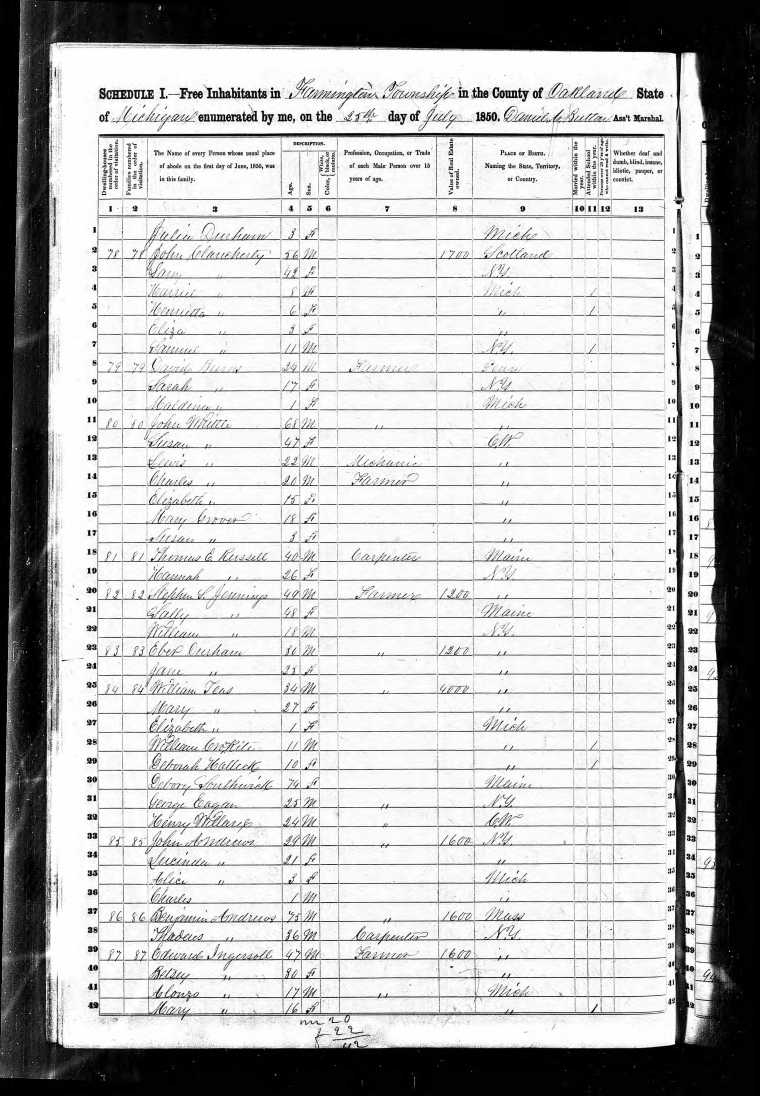 SCHEDULE I.—Free Inhabitants in Farmington Township in the County of Oakland State
of Michigan enumerated by me, on the 25th day of July 1850. Daniel Ass't Marshal.
Dwelling-houses numbered in the order of visitation.
Families numbered in the order of visitation.
The Name of every Person whose usual place of abode on the first day of June, 1850, was in this family.
DESCRIPTION.
Age.
Sex.
Color, White, black, or mulatto.
Profession, Occupation, or Trade of each Male Person over 15 years of age.
Value of Real Estate owned.
PLACE OF BIRTH. Naming the State, Territory, or Country.
Married within the year.
Attended School within the year.
Whether deaf and dumb, blind, insane, idiotic, pauper, or convict.
1 2 3 4 5 6 7 8 9 10 11 12 13
1 Julia Durham 3 F Mich 1
2 78 78 John Clancherty 56 M 1700 Scotland 2
3 42 F N.Y. 3
4 8 Mich 1 4
5 Henrietta " 6 F " 1 5
6 Eliza " 3 F " 6
7 Samuel " 11 M N.Y. 1 7
8 79 79 David 29 M Farmer 8
9 Sarah " 17 F N.Y. 9
10 " 1 F Mich 10
11 80 80 John 68 M " " 11
12 Susan " 47 F C.W. 12
13 Lewis " 22 M Mechanic " 13
14 Charles " 20 M Farmer " 14
15 Elizabeth " 15 F " 15
16 Mary Grover 18 F " 16
17 Susan " 3 F " 17
18 81 81 Thomas E. Russell 40 M Carpenter Maine 18
19 Hannah " 26 F N.Y. 19
20 82 82 Stephen S. Jennings 49 M Farmer 1200 " 20
21 Sally " 48 F Maine 21
22 William " 18 M N.Y. 22
23 83 83 Eber Durham 30 M " 1200 " 23
24 Jane " 23 F " 24
25 84 84 William Teas 34 M " 4000 " 25
26 Mary " 27 F " 26
27 Elizabeth " 1 F Mich 27
28 William 11 M " 1 28
29 Deborah Halleck 10 F " 1 29
30 Southwick 74 F Maine 30
31 George Eagan 25 M " N.Y. 31
32 Henry 24 M " C.W. 32
33 85 85 John Andrews 29 M " 1600 N.Y. 33
34 Lucinda " 21 F " 34
35 Alice " 3 F Mich 35
36 Charles 1 M " 36
37 86 86 Benjamin Andrews 75 M " 1600 Mass 37
38 Thadeus " 36 M Carpenter N.Y. 38
39 87 87 Edward Ingersoll 47 M Farmer 1600 " 39
40 Betsey " 30 F " 40
41 Alonzo " 17 M " Mich 41
42 Mary " 16 F " 1 42
m 20
f 22
42